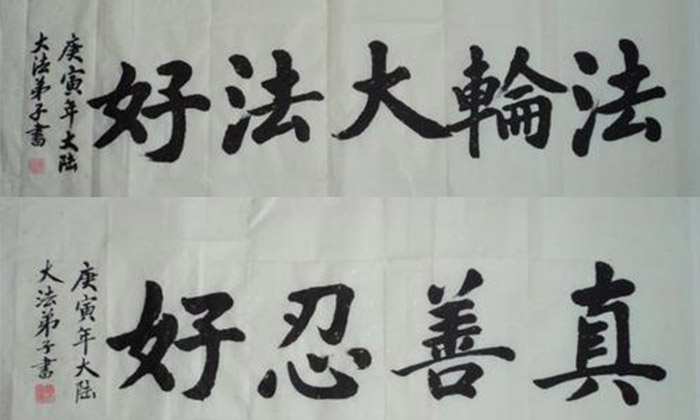 法輪大法好
庚寅年大陆
大法弟子書
真善忍好
庚寅年大陆
大法弟子書